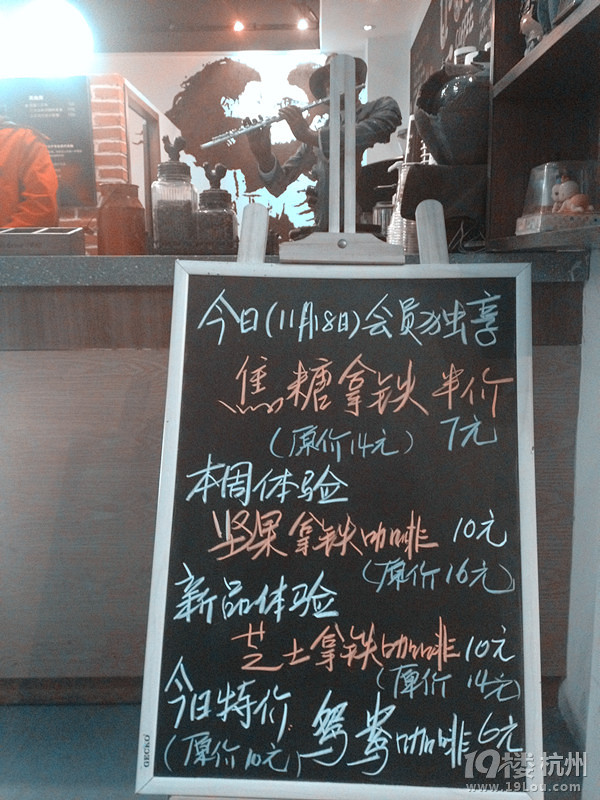 今日(11月18日)会员独享
焦糖拿铁 半价
(原价14元) 7元
本周体验
坚果拿铁咖啡 10元
(原价16元)
新品体验
芝士拿铁咖啡 10元
(原价14元)
今日特价
(原价10元) 鸳鸯咖啡 6元
GECKO
COFFEE
19楼杭州
www.19lou.com